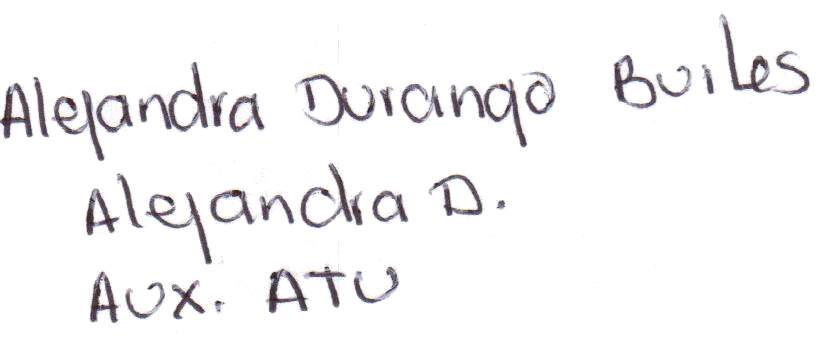 Alejandra Durango Builes
Alejandra D.
Aux. ATU